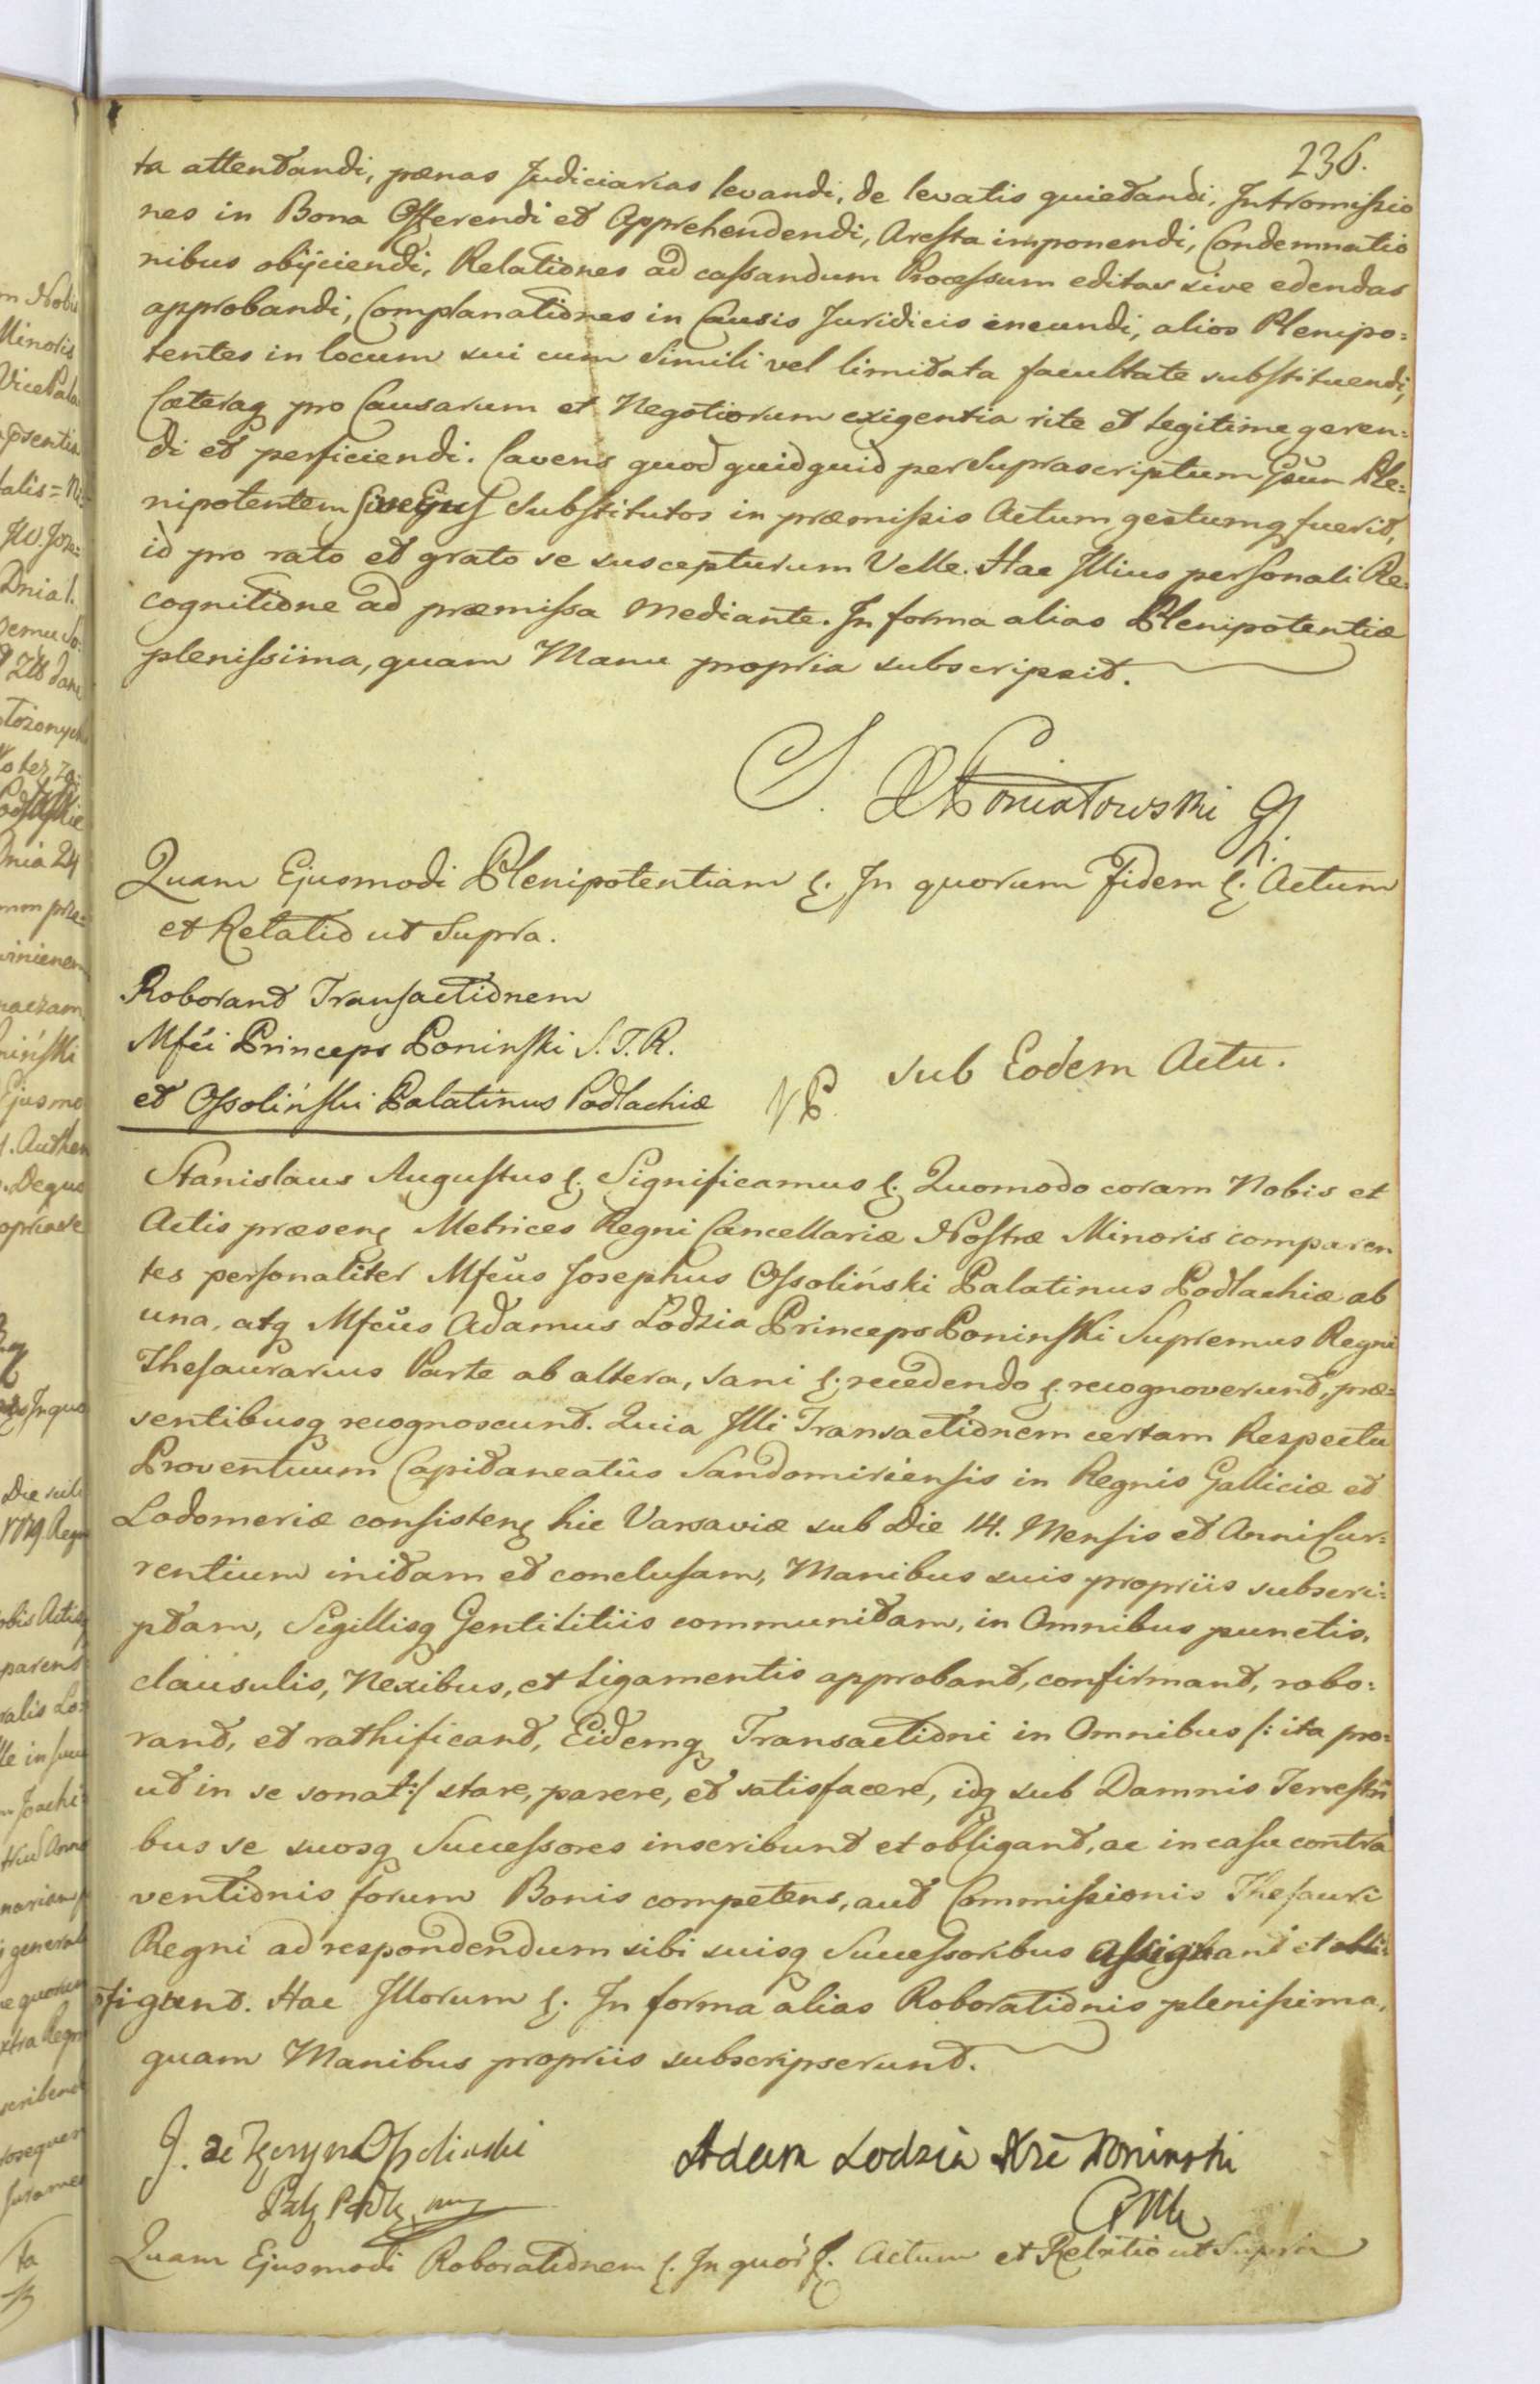 236.
ta attentandi, pœnas Judiciarias levandi, de levatis quietandi, Intromissio
nes in Bona Offerendi et Apprehendendi, Aresta imponendi, Condemnatio
nibus obijciendi, Relationes ad cassandum Processum editas sive edendas
approbandi, Complanationes in Causis Juridicis ineundi, alios Plenipo=
tentes in locum sui cum simili vel limitata facultate substituendi,
Cæteraq pro Causarum et Negotiorum exigentia rite et legitime geren=
di et perficiendi. Cavens quod quidquid per Suprascriptum Gsum Ple=
nipotentem sive Ejus Substitutos in præmissis Actum gestumq fuerit,
id pro rato et grato se suscepturum Velle. Hac Illius personali Re=
cognitione ad præmissa Mediante. In forma alias Plenipotentiæ
plenissima, quam Manu propria subscripsit.
Poniatowski
Quam Ejusmodi Plenipotentiam &. In quorum Fidem &. Actum
et Relatio ut Supra.
Roborant Transactionem
Mfci Princeps Poninski S. T. R.
et Ossoliński Palatinus Podlachiæ
Sub Eodem Actu.
Stanislaus Augustus &. Significamus &. Quomodo coram Nobis et
Actis præsens Metrices Regni Cancellariæ Nostræ Minoris comparen
tes personaliter Mfcus Josephus Ossoliński Palatinus Podlachiæ ab
una, atq Mfcus Adamus Lodzia Princeps Poninski Supremus Regni
Thesaurarius Parte ab altera, sani &. recedendo &. recognoverunt, præ=
sentibusq recognoscunt. Quia Illi Transactionem certam Respectu
Proventuum Capitaneatûs Sandomiriensis in Regnis Galliciæ et
Lodomeriæ consistens hic Varsaviæ sub Die 14. Mensis et Anni Cur=
rentium initam et conclusam, Manibus suis propriis subscri=
ptam, Sigillisq Gentilitiis communitam, in Omnibus punctis,
clausulis, Nexibus, et Ligamentis approbant, confirmant, robo=
rant, et rathificant, Eidemq Transactioni in Omnibus /: ita pro=
ut in se sonat :/ stare, parere, et satisfacere, idq sub Damnis Terrestri
bus se suosq Successores inscribunt et obligant, ac in casu contra
ventionis forum Bonis competens, aut Commissionis Thesauri
Regni ad respondendum sibi suisq Successoribus assignant et
figunt. Hac Illorum &. In forma alias Roborationis plenissima,
quam Manibus propriis subscripserunt.
J. de Ossolinski
Adam Lodzia Xże Poninski
Quam Ejusmodi Roborationem &. In quor &. Actum et Relatio ut Supra